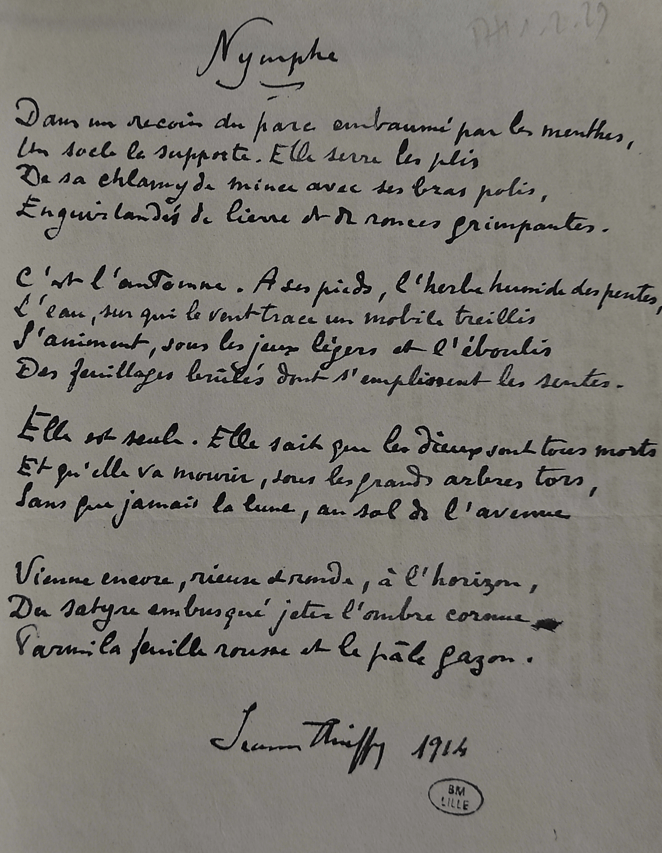 Nymphe
Dans un recoin du parc embaumé par les menthes,
Un socle la supporte. Elle serre les plis
De sa chlamyde mince avec ses bras polis,
Enguirlandés de lierre et de ronces grimpantes.
C'est l'automne. A ses pieds, l'herbe humide des pentes,
L'eau, sur qui le vent trace un mobile treillis
S'animent, sous les jeux légers et l'éboulis
Des feuillages brûlés dont s'emplissent les sentes.
Elle est seule. Elle sait que les dieux sont tous morts
Et qu'elle va mourir, sous les grands arbres tors,
Sans que jamais la lune, au sol de l'avenue
Vienne encore, rieuse et ronde, à l'horizon,
Du satyre embusqué jeter l'ombre cornue
Parmi la feuille rousse et le pâle gazon.
1914
BM
LILLE